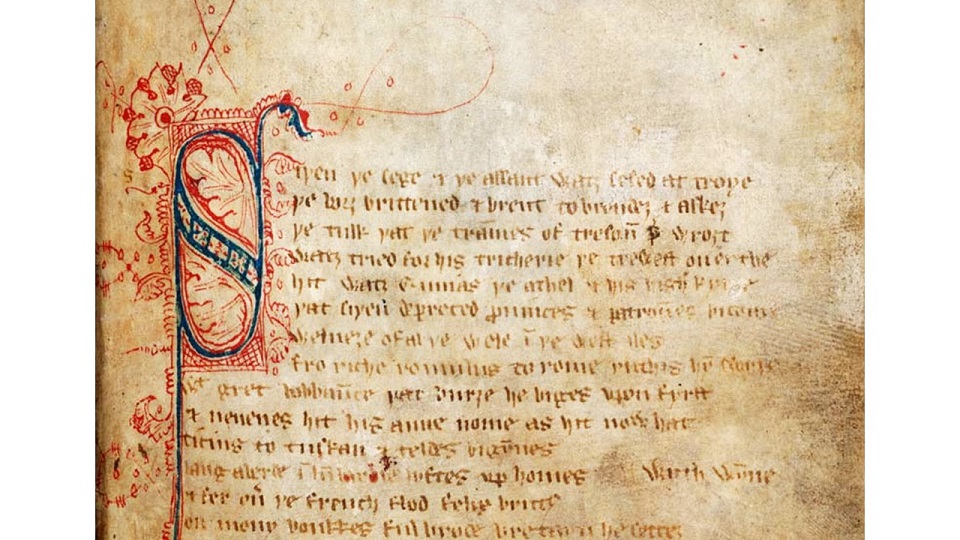 Siþen þe sege & þe assaut watȝ sesed at troye
þe borȝ brittened & brent to brondeȝ & askeȝ
þe tulk þat þe tram̅es of tresoū þ̄ wroȝt
watȝ tried for his tricherie þe trewest on erthe
hit watȝ Ennias þe athel & his highe
þat siþen depreced ꝓuinces & patrou̅es bicome
welneȝe of al þe wele ī þe west iles
fro riche romulus to rome ricchis hȳ
gret bobbaūce þat burȝe he biges vpon fyrst
& neuenes hit his aune nome as hit now hat
to tuskan & teldes bigȳnes
ī lyftes vp homes wyth wȳne
& fer ou̅ þe french flod felix
on mony bonkkes ful brode bretayn he setteȝ